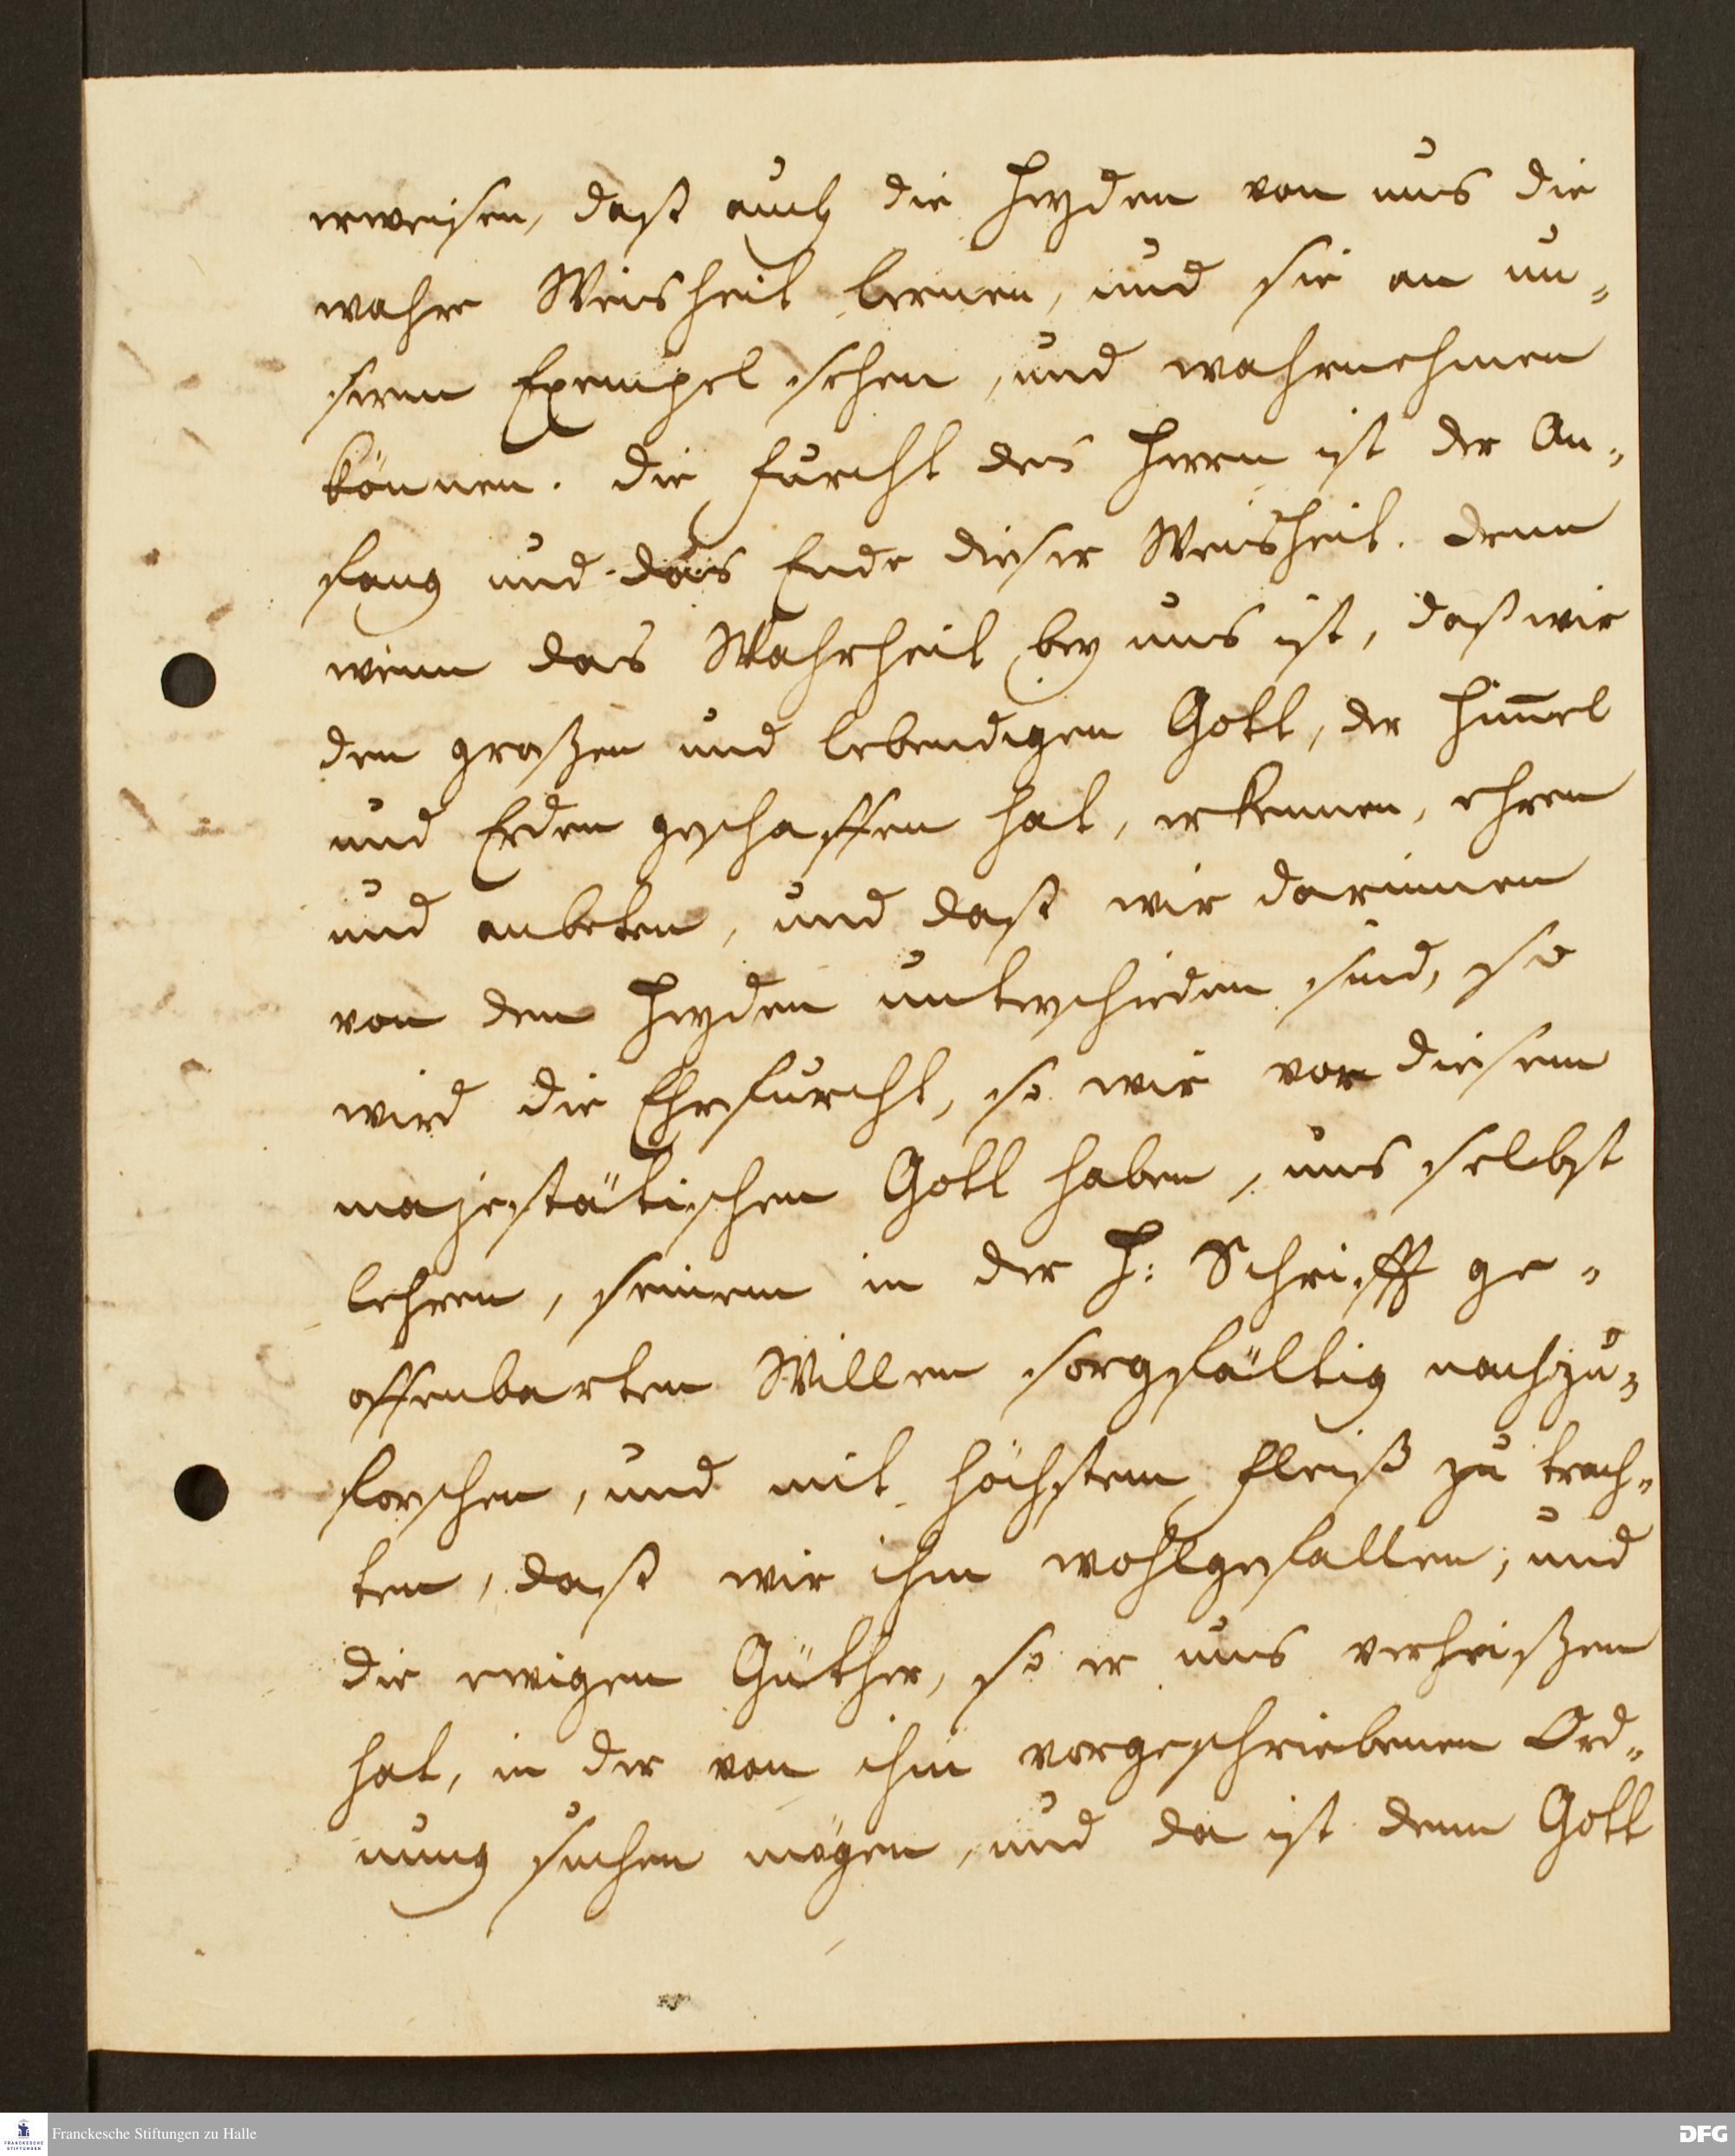 erweisen, daß auch die Heyden von uns die
wahre Weisheit lernen, und sie an un-
serm Exempel sehen, und wahrnehmen
können. Die Furcht des Herrn ist der An-
fang und das Ende dieser Weisheit. Denn
wenn das Wahrheit bey uns ist, daß wir
den großen und lebendigen Gott, der Him̅el
und Erden geschaffen hat, erkennen, ehren
und anbeten, und daß wir darinnen
von den Heyden unterschieden sind, so
wird die Ehrfurcht, so wir vor diesem
majestätischen Gott haben, uns selbst
lehren, seinem in der H: Schrifft ge-
offenbarten Willen sorgfältig nachzu-
forschen, und mit höchstem Fleiß zu trach-
ten, daß wir ihm wohlgefallen, und
die ewigen Güther, so er uns verheißen
hat, in der von ihm vorgeschriebenen Ord-
nung suchen mögen, und da ist denn Gott
Franckesche Stiftungen zu Halle
DFG